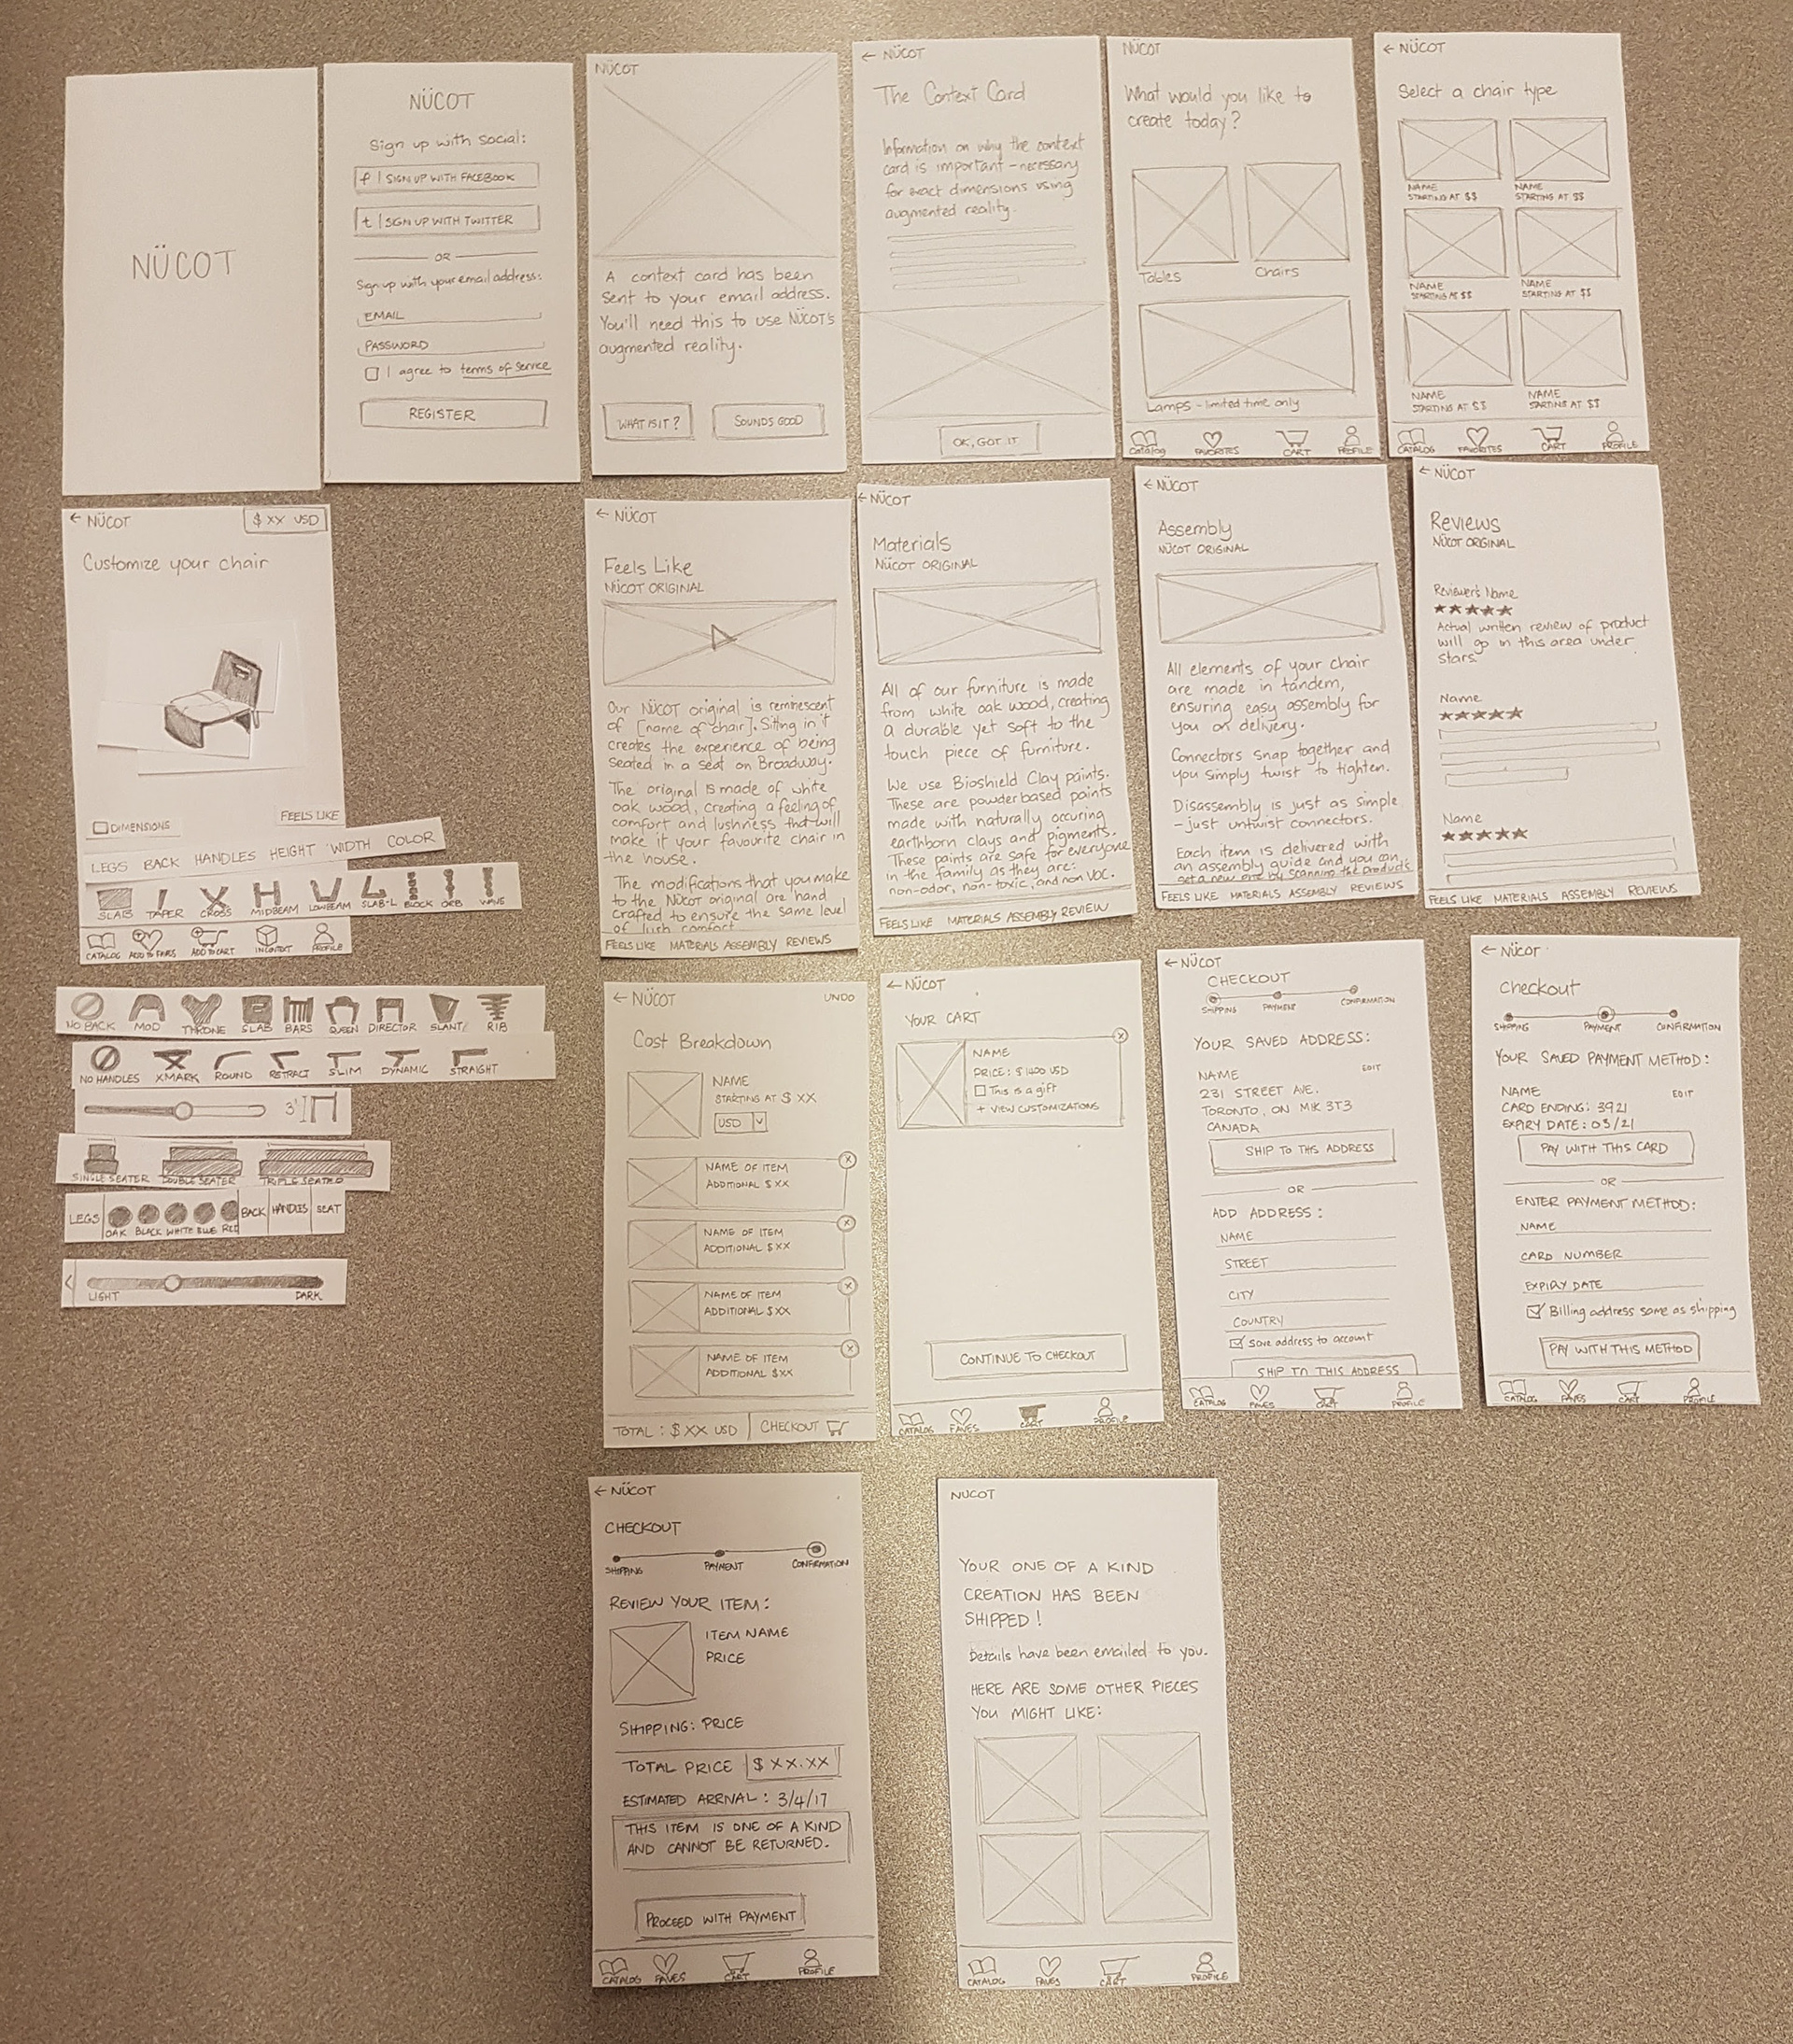 NÜCOT
NÜCOT
Sign up with social:
f | SIGN UP WITH FACEBOOK
t | SIGN UP WITH TWITTER
OR
Sign up with your email address:
EMAIL
PASSWORD
I agree to terms of service
REGISTER
NÜCOT
A context card has been
sent to your email address.
You'll need this to use NÜCOT's
augmented reality.
WHAT IS IT?
SOUNDS GOOD
← NÜCOT
The Context Card
Information on why the context
card is important - necessary
for exact dimensions using
augmented reality.
OK, GOT IT
NÜCOT
What would you like to
create today?
Tables
Chairs
Lamps - limited time only
Catalog
FAVORITES
CART
PROFILE
← NÜCOT
Select a chair type
NAME
STARTING AT $$
NAME
STARTING AT $$
NAME
STARTING AT $$
NAME
STARTING AT $$
NAME
STARTING AT $$
NAME
STARTING AT $$
CATALOG
FAVORITES
CART
PROFILE
← NÜCOT
$ XX USD
Customize your chair
DIMENSIONS
FEELS LIKE
LEGS BACK HANDLES HEIGHT WIDTH COLOR
SLAB TAPER CROSS MIDBEAM LOWBEAM SLAB-L BLOCK ORB WAVE
CATALOG ADD TO FAVES ADD TO CART IN CONTEXT PROFILE
NO BACK MOD THRONE SLAB BARS QUEEN DIRECTOR SLANT RIB
NO HANDLES XMARK ROUND RETRACT SLIM DYNAMIC STRAIGHT
3'
SINGLE SEATER DOUBLE SEATER TRIPLE SEATER
LEGS OAK BLACK WHITE BLUE RED BACK HANDLES SEAT
<
LIGHT DARK
← NÜCOT
Feels Like
NÜCOT ORIGINAL
Our NÜCOT original is reminescent
of [name of chair]. Sitting in it
creates the experience of being
seated in a seat on Broadway.
The original is made of white
oak wood, creating a feeling of
comfort and lushness that will
make it your favourite chair in
the house.
The modifications that you make
to the Nücot original are hand
crafted to ensure the same level
of lush comfort
FEELS LIKE MATERIALS ASSEMBLY REVIEWS
← NÜCOT
Materials
NÜCOT ORIGINAL
All of our furniture is made
from white oak wood, creating
a durable yet soft to the
touch piece of furniture.
We use Bioshield Clay paints.
These are powder based paints
made with naturally occuring
earthborn clays and pigments.
These paints are safe for everyone
in the family as they are:
non-odor, non-toxic, and non VOC.
FEELS LIKE MATERIALS ASSEMBLY REVIEW
← NÜCOT
Assembly
NÜCOT ORIGINAL
All elements of your chair
are made in tandem,
ensuring easy assembly for
you on delivery.
Connectors snap together and
you simply twist to tighten.
Disassembly is just as simple
- just untwist connectors.
Each item is delivered with
an assembly guide and you can
get a new one by scanning the products
FEELS LIKE MATERIALS ASSEMBLY REVIEWS
← NÜCOT
Reviews
NÜCOT ORIGINAL
Reviewer's Name
★★★★★
Actual written review of product
will go in this area under
stars.
Name
★★★★★
Name
★★★★★
FEELS LIKE MATERIALS ASSEMBLY REVIEWS
← NÜCOT
UNDO
Cost Breakdown
NAME
STARTING AT $ XX
USD
NAME OF ITEM
ADDITIONAL $ XX
NAME OF ITEM
ADDITIONAL $ XX
NAME OF ITEM
ADDITIONAL $ XX
NAME OF ITEM
ADDITIONAL $XX
TOTAL : $ XX USD
CHECKOUT
← NÜCOT
YOUR CART
NAME
PRICE: $ 1400 USD
This is a gift
+ VIEW CUSTOMIZATIONS
CONTINUE TO CHECKOUT
CATALOG
FAVES
CART
PROFILE
← NÜCOT
CHECKOUT
SHIPPING
PAYMENT
CONFIRMATION
YOUR SAVED ADDRESS:
NAME
EDIT
231 STREET AVE.
TORONTO, ON M1K 3T3
CANADA
SHIP TO THIS ADDRESS
OR
ADD ADDRESS:
NAME
STREET
CITY
COUNTRY
Save address to account
SHIP TO THIS ADDRESS
CATALOG
FAVES
CART
PROFILE
← NÜCOT
Checkout
SHIPPING
PAYMENT
CONFIRMATION
YOUR SAVED PAYMENT METHOD:
NAME
EDIT
CARD ENDING: 3921
EXPIRY DATE: 03/21
PAY WITH THIS CARD
OR
ENTER PAYMENT METHOD:
NAME
CARD NUMBER
EXPIRY DATE
Billing address same as shipping
PAY WITH THIS METHOD
CATALOG
FAVES
CART
PROFILE
← NÜCOT
CHECKOUT
SHIPPING
PAYMENT
CONFIRMATION
REVIEW YOUR ITEM:
ITEM NAME
PRICE
SHIPPING: PRICE
TOTAL PRICE $ XX.XX
ESTIMATED ARRIVAL : 3/4/17
THIS ITEM IS ONE OF A KIND
AND CANNOT BE RETURNED.
PROCEED WITH PAYMENT
CATALOG
FAVES
CART
PROFILE
NUCOT
YOUR ONE OF A KIND
CREATION HAS BEEN
SHIPPED!
Details have been emailed to you.
HERE ARE SOME OTHER PIECES
YOU MIGHT LIKE:
CATALOG
FAVES
CART
PROFILE